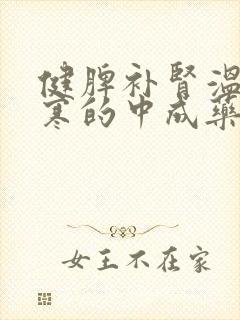 健脾补肾温
寒的中成药
女王不在家